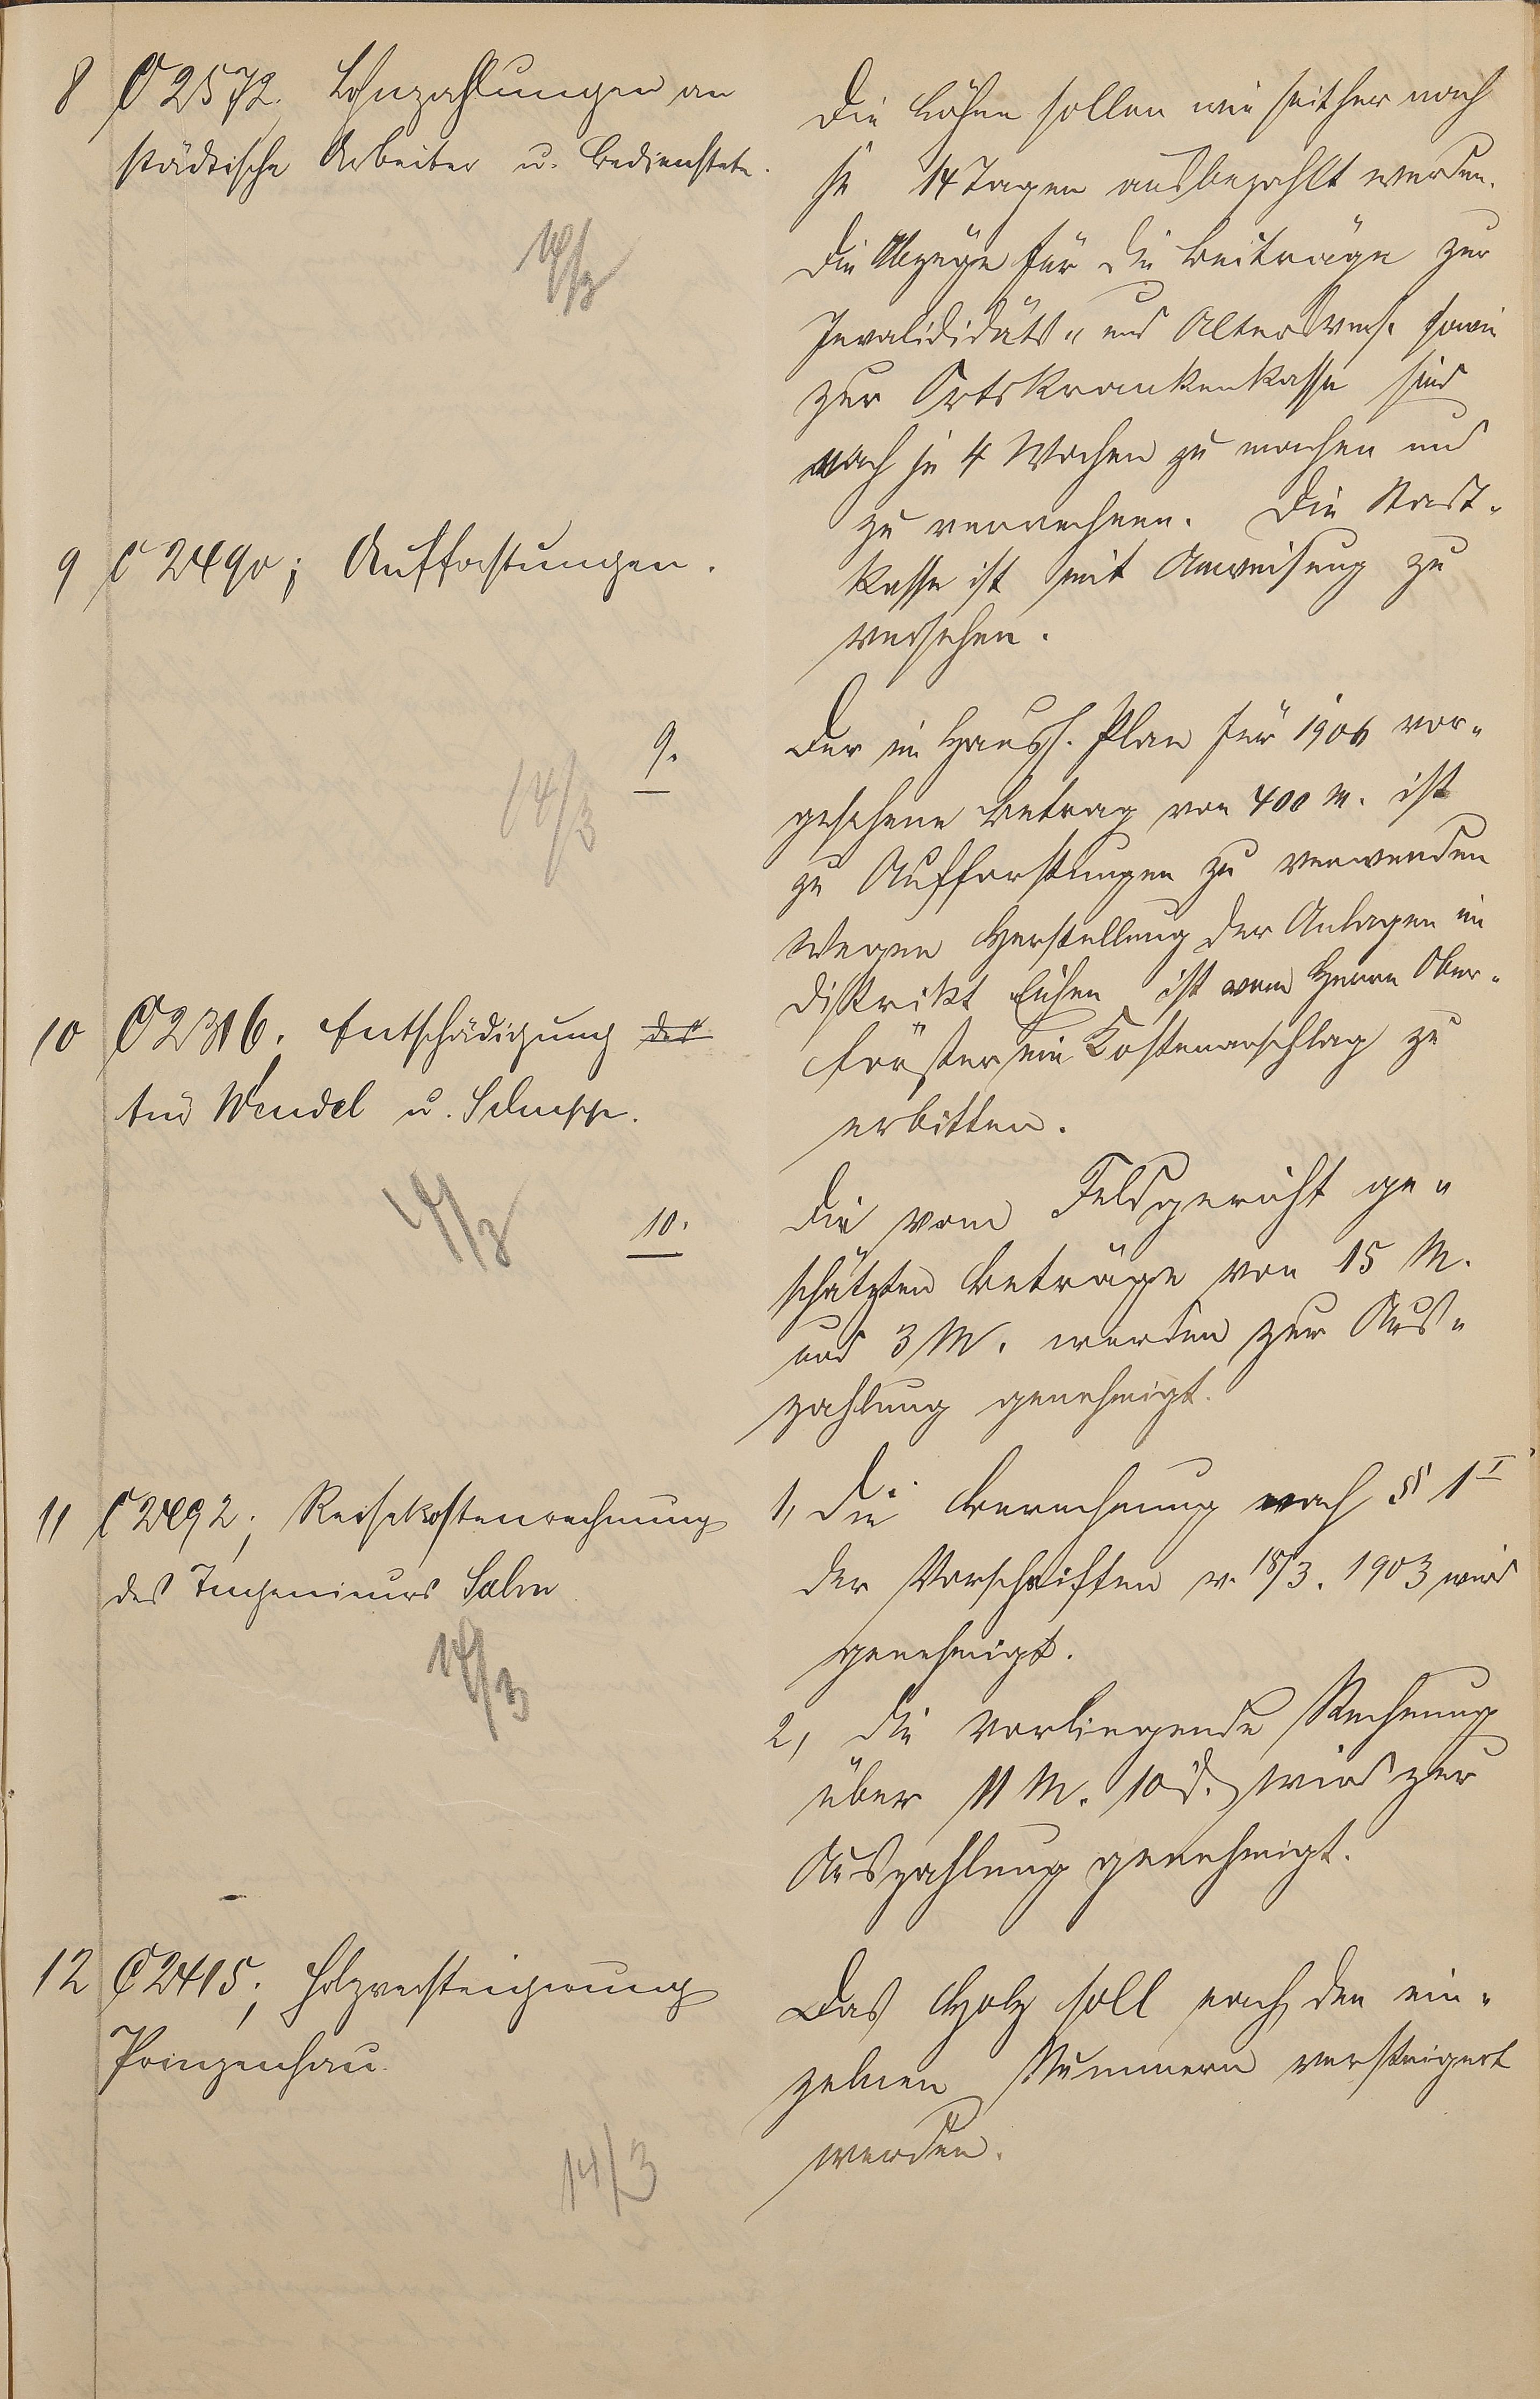 8 C 2572. Lohnzahlungen an
städtische Arbeiter u. Bedienstete.
14/3
Die Löhne sollen wie seither nach
je 14 Tagen ausbezahlt werden.
Die Abzüge für die Beiträge zur
Invalididäts- und Altersvers. sowie
zur Ortskrankenkasse sind
nach je 4 Wochen zu machen und
zu verrechnen. Die Stadt-
kasse ist mit Anweisung zu
versehen.
9 C 2490; Aufforstungen.
14/3
9.
Der im Haush. Plan für 1906 vor-
gesehene Betrag von 400 M. ist
zu Aufforstungen zu verwenden
Wegen Herstellung der Anlagen im
Distrikt Eichen ist vom Herrn Ober-
förster ein Kostenanschlag zu
erbitten.
10 C 2316. Entschädigung der
Wendel u.
14/3
10.
Die vom Feldgericht ge-
schätzten Beträge von 15 M.
und 3 M. werden zur Aus-
zahlung genehmigt.
11 C 2492; Reisekostenrechnung
des Ingenieurs Salm
14/3
1, Die Berechnung nach § 1 I
der Vorschriften v. 18/3. 1903 wird
genehmigt.
2, die vorliegende Rechnung
über 11 M. 10 d. wird zur
Auszahlung genehmigt.
12 C 2415; Holzversteigerung
Prinzenhau.
14/3
Das Holz soll nach den ein-
zelnen Nummern versteigert
werden.